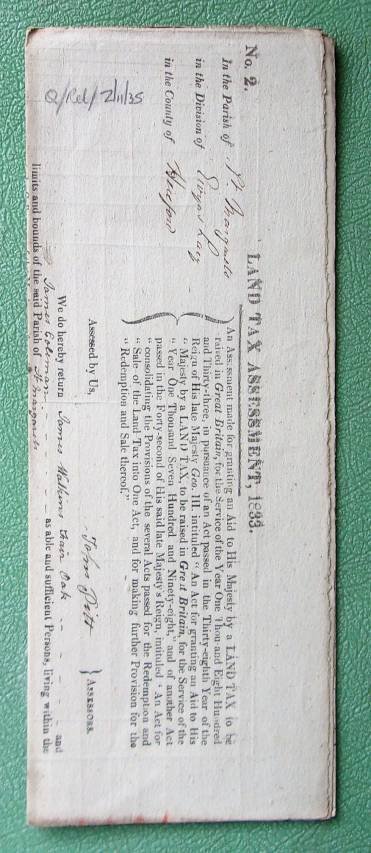 No. 2.
LAND TAX ASSESSMENT, 1833.
In the Parish of St. Margaretts
in the Division of Ewyas Lacy
in the County of Hereford
An Assessment made for granting an Aid to His Majesty by a LAND TAX to be
raised in Great Britain, for the Service of the Year One Thou and Eight Hundred
and Thirty-three, in pursuance of an Act passed in the Thirty-eighth Year of the
Reign of His late Majesty Geo. III. intituled "An Act for granting an Aid to His
"Majesty by a LAND TAX, to be raised in Great Britain, for the Service of the
"Year One Thousand Seven Hundred and Ninety-eight," and of another Act
passed in the Forty-second of His said late Majesty's Reign, intituled "An Act for
"consolidating the Provisions of the several Acts passed for the Redemption and
"Sale of the Land Tax into One Act, and for making further Provision for the
"Redemption and Sale thereof."
Assessed by Us,
John Pitt
ASSESSORS.
We do hereby return James Watkins Oak and
James Coleman as able and sufficient Persons, living within the
limits and bounds of the said Parish of St Margaretts
Q/Rel/2/11/35